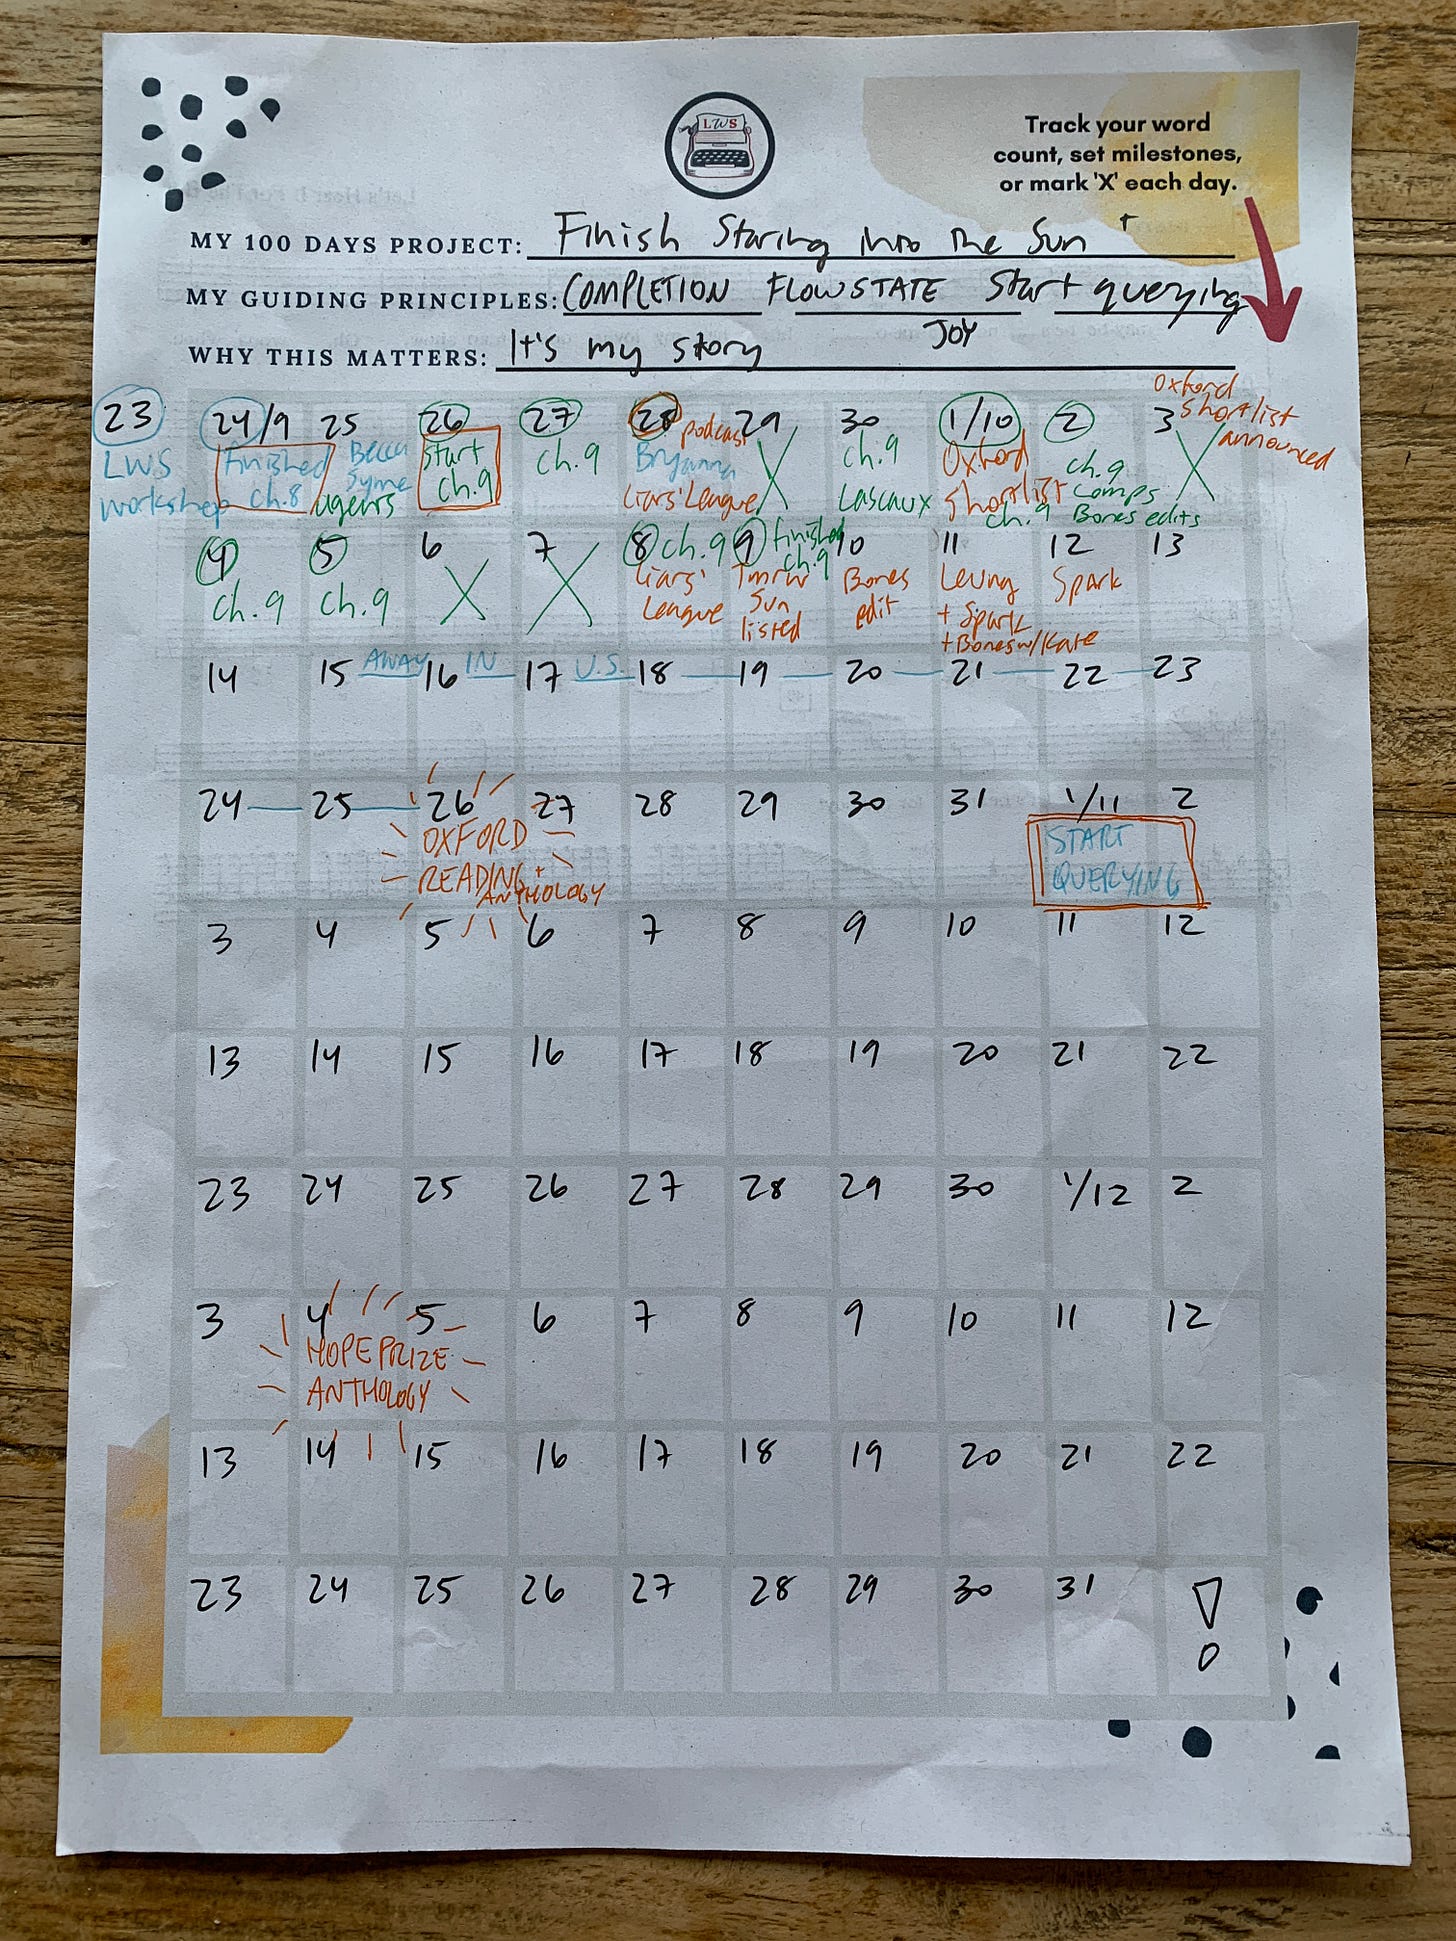 LWS
Track your word
count, set milestones,
or mark 'X' each day.
MY 100 DAYS PROJECT: Finish Staring into the Sun +
MY GUIDING PRINCIPLES: COMPLETION FLOWSTATE Start querying
JOY
WHY THIS MATTERS: It's my story
Oxford
shortlist
announced
23 24/9 25 26 27 28 podcast 29 30 1/10 2 3
LWS Finished Becca start ch.9 Bryanna X ch.9 Oxford ch.9 X
workshop ch.8 Syme agents ch.9 Liars' League Lascaux shortlist ch.9 comps Bones edits
4 5 6 7 8 ch.9 9 finished ch.9 10 11 12 13
ch.9 ch.9 X X Liars' Tmrw Bones Leung Spark
League Sun edit + Spark
listed + Bones w/Kate
14 15 AWAY 16 IN 17 U.S. 18 19 20 21 22 23
24 25 26 27 28 29 30 31 1/11 2
OXFORD START
READING + QUERYING
ANTHOLOGY
3 4 5 6 7 8 9 10 11 12
13 14 15 16 17 18 19 20 21 22
23 24 25 26 27 28 29 30 1/12 2
3 4 5 6 7 8 9 10 11 12
HOPE PRIZE
ANTHOLOGY
13 14 15 16 17 18 19 20 21 22
23 24 25 26 27 28 29 30 31 !